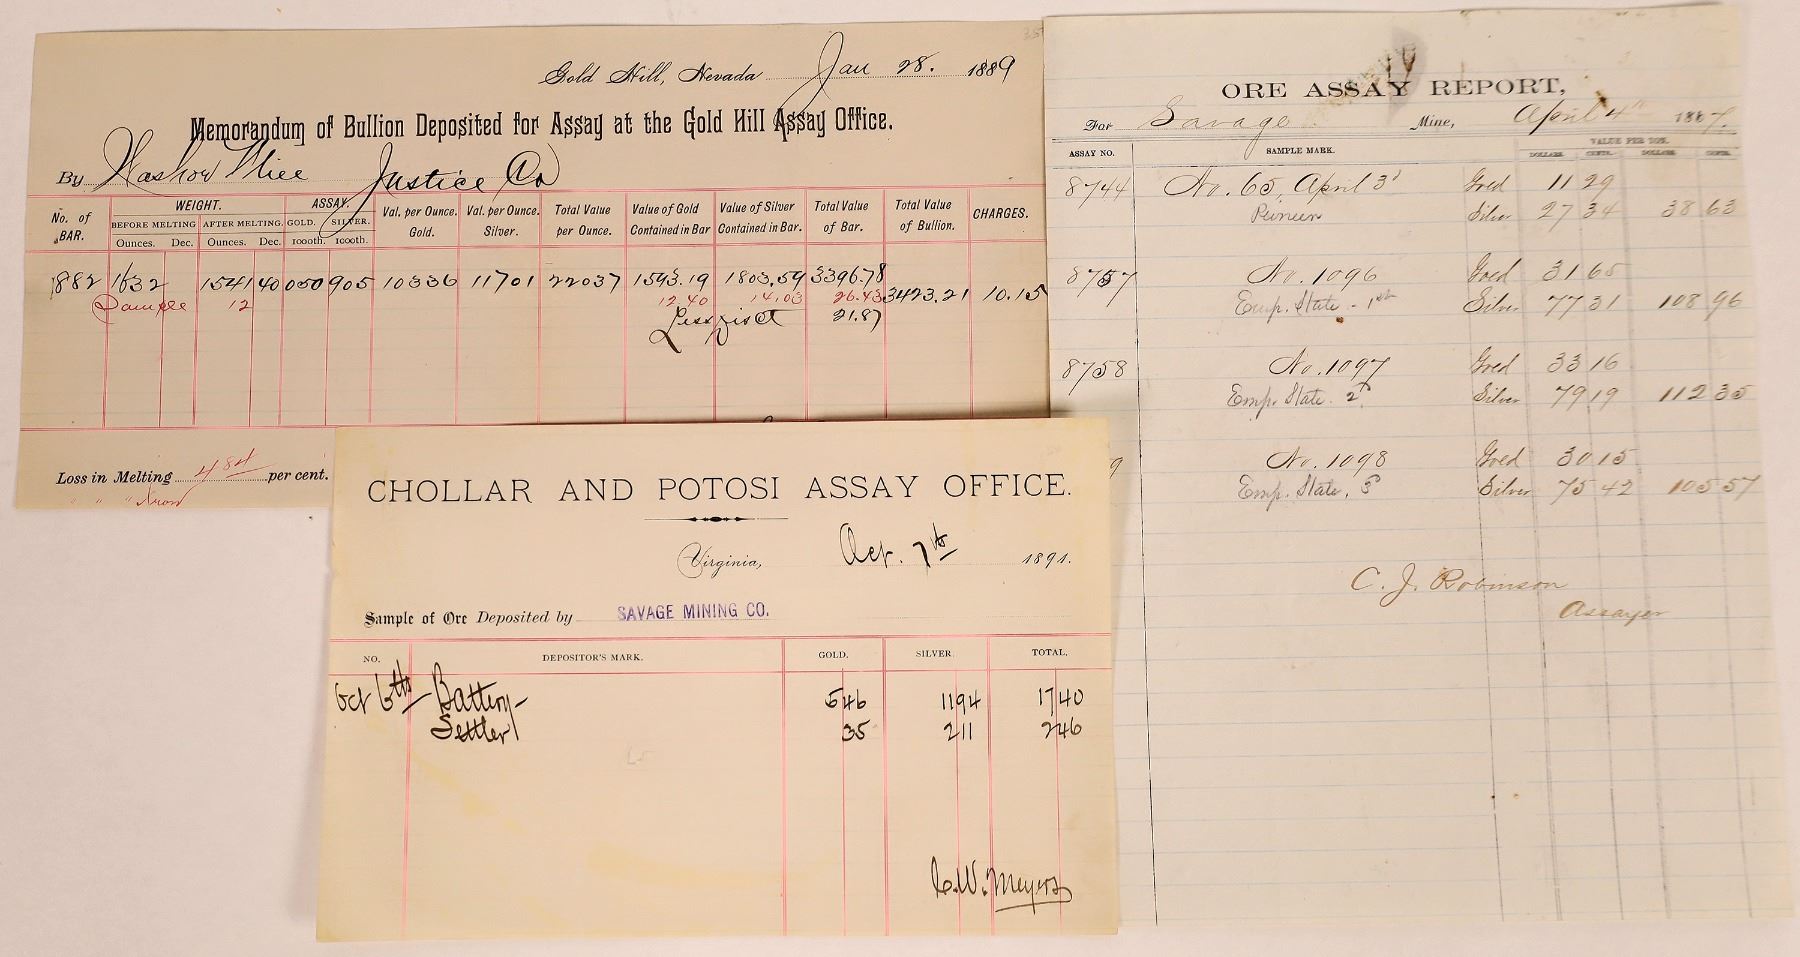 Gold Hill, Nevada Jan 28. 1889
Memorandum of Bullion Deposited for Assay at the Gold Hill Assay Office.
By Justice Co
No. of BAR. WEIGHT. ASSAY. Val. per Ounce. Gold. Val. per Ounce. Silver. Total Value per Ounce. Value of Gold Contained in Bar Value of Silver Contained in Bar. Total Value of Bar. Total Value of Bullion. CHARGES.
BEFORE MELTING AFTER MELTING. GOLD. SILVER.
Ounces. Dec. Ounces. Dec. 1000th. 1000th.
1882 1632 1541 40 050 905 10336 11701 22037 1593.19 1803.59 3396.78
Sample 12 12.40 14.03 26.43 3423.21 10.15
Less 21.87
Loss in Melting 4 84 per cent.
" " " Iron
ORE ASSAY REPORT,
For Savage Mine, April 4th 1867.
ASSAY NO. SAMPLE MARK. VALUE PER TON.
DOLLARS. CENTS. DOLLARS. CENTS.
8744 No. 65, April 3d Gold 11 29
Silver 27 34 38 63
8757 No. 1096 Gold 31 65
Emp. State - 1st Silver 77 31 108 96
8758 No. 1097 Gold 33 16
Emp. State. 2d Silver 79 19 112 35
9 No. 1098 Gold 30 15
Emp. State, 3d Silver 75 42 105 57
C. J. Robinson
Assayer
CHOLLAR AND POTOSI ASSAY OFFICE.
Virginia, Oct. 7th 1891.
Sample of Ore Deposited by SAVAGE MINING CO.
NO. DEPOSITOR'S MARK. GOLD. SILVER. TOTAL.
Oct 6th - Battery - 5 46 11 94 17 40
Settler 35 2 11 2 46
C. W. Meyers